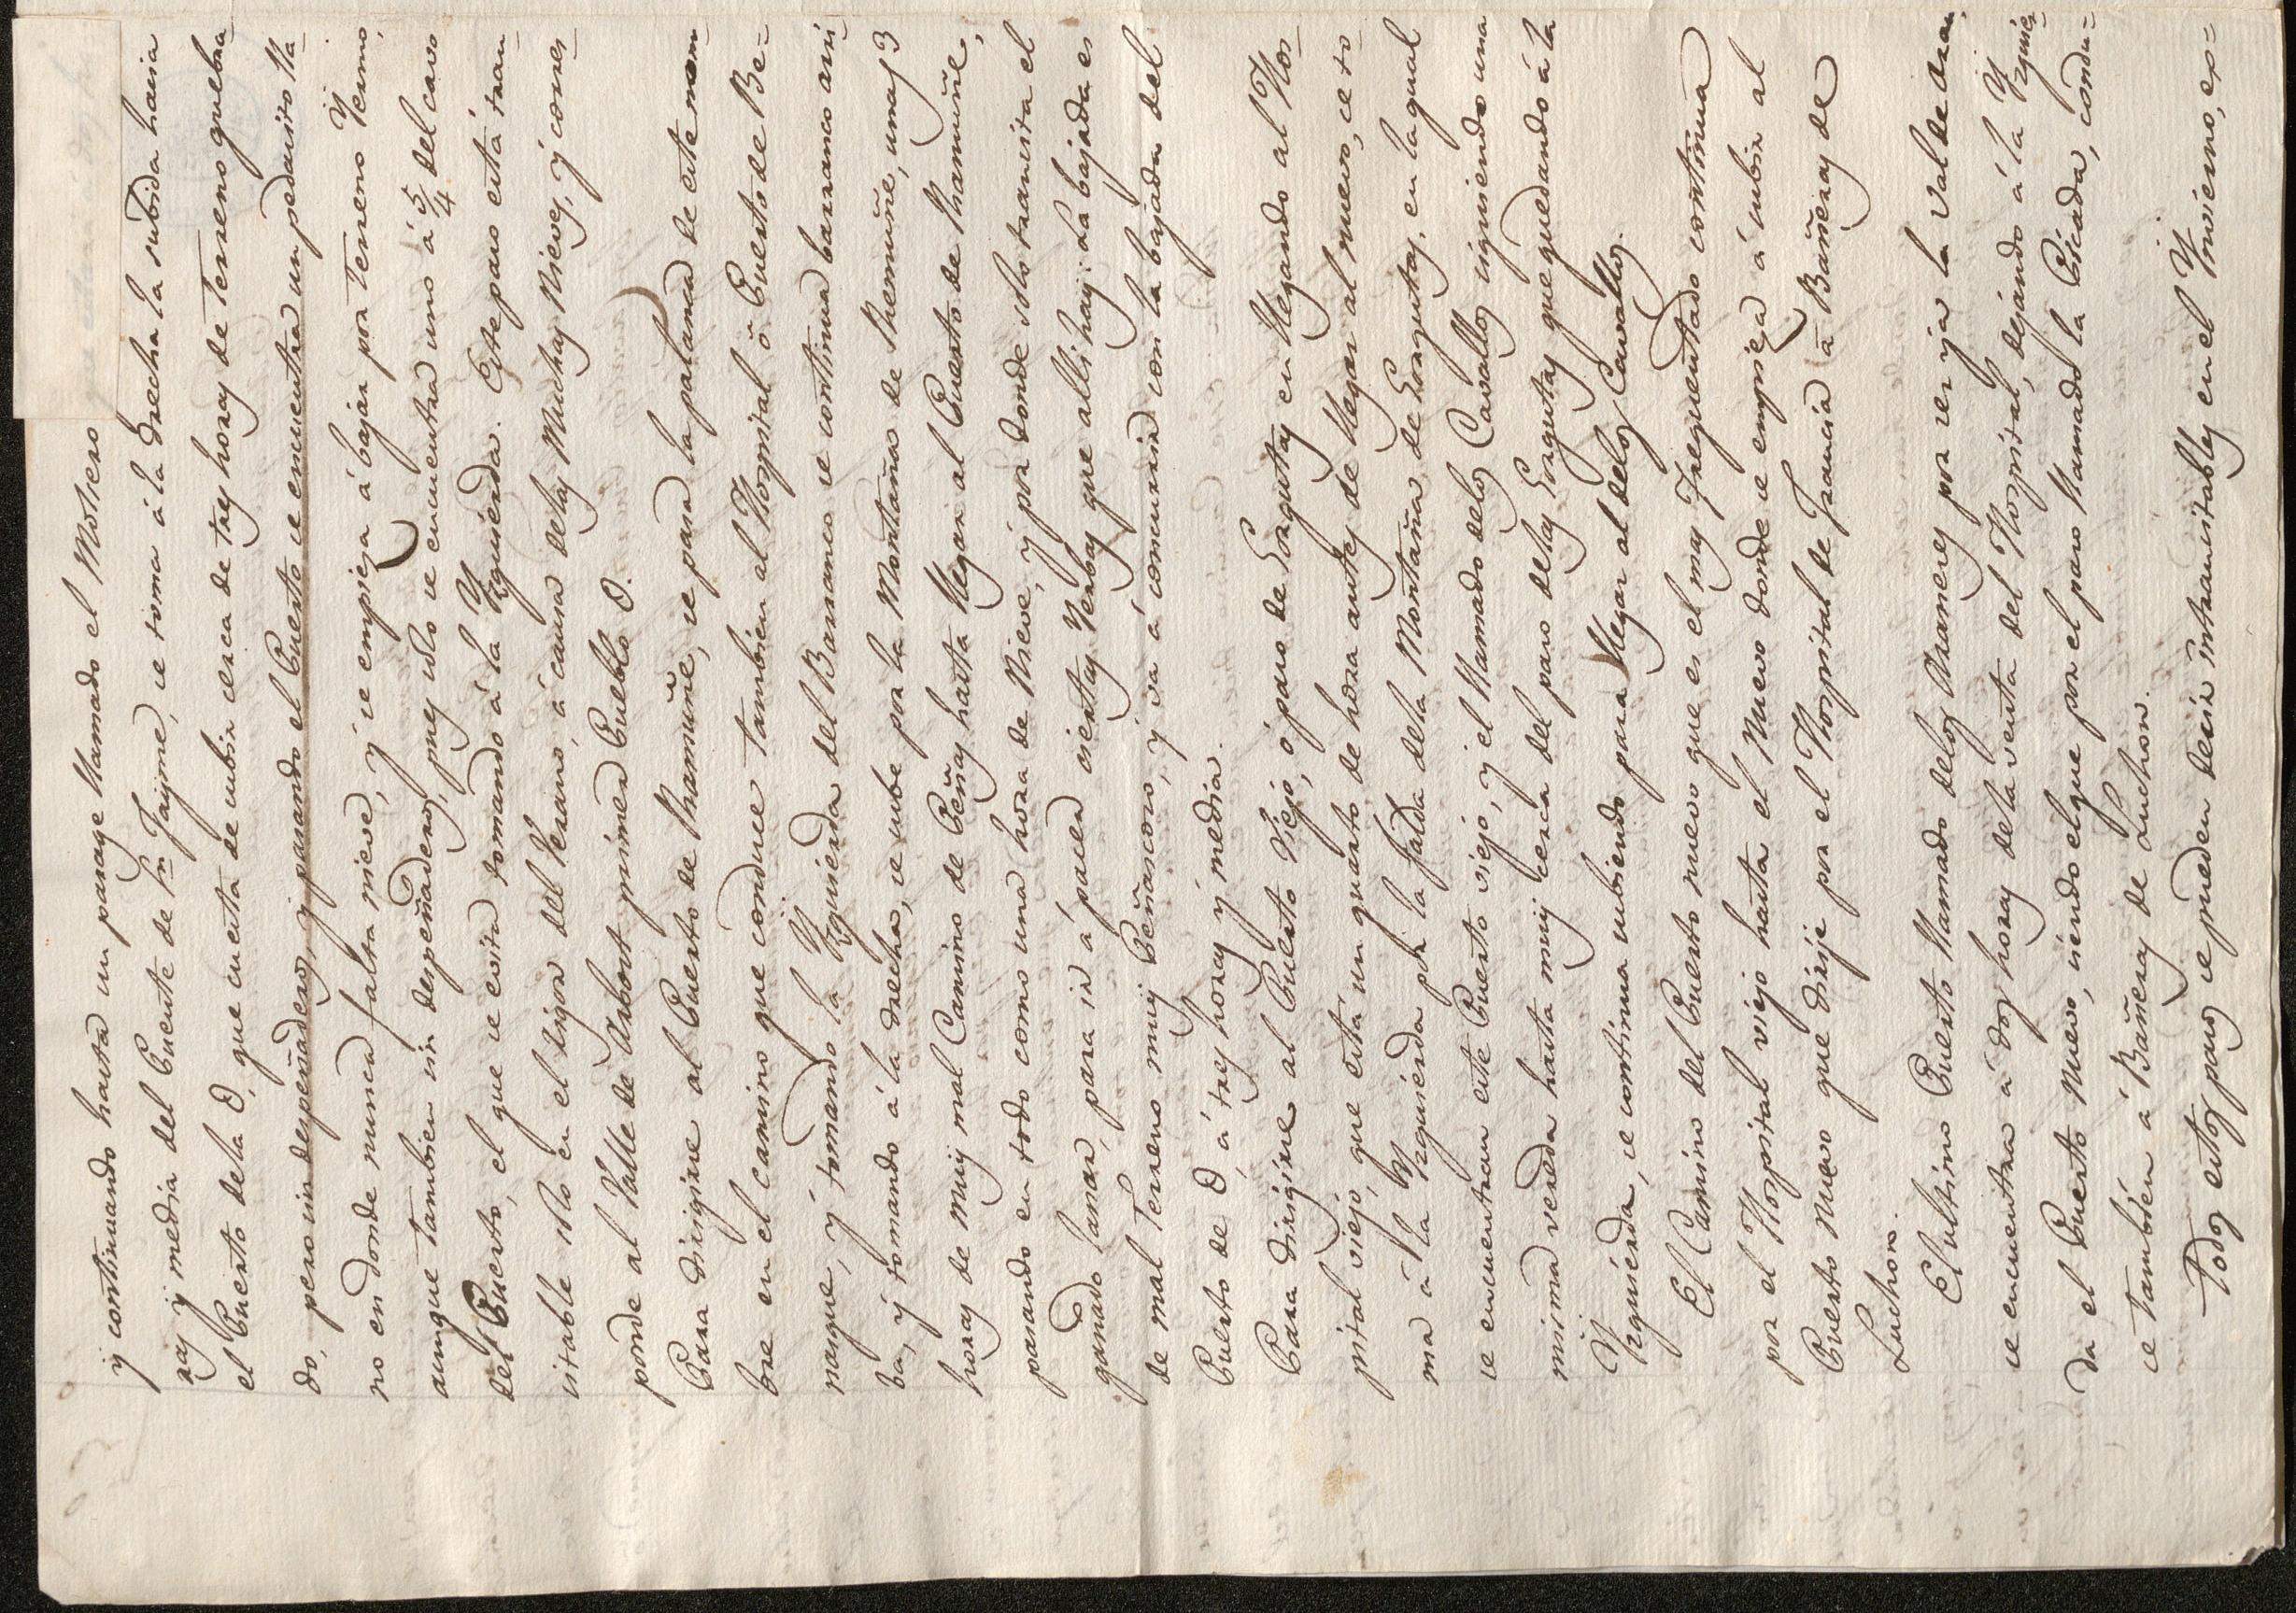 y continuando hasta un parage llamado el Mosiero
ras y media del Puente de Sn. Jayme, se toma á la Drecha la subida hacia
el Puerto dela O, que cuesta de subir cerca de tres horas de terreno quebra-
do, pero sin despeñaderos, y pasando el Puerto se encuentra un pedacito lla-
no en donde nunca falta nieve, y se empieza á bajar por terreno Yermo,
aunque tambien sin despeñaderos, pues solo se encuentra uno á 5/4 del caso
del Puerto, el que se evita tomando á la Yzquierda. Este paso está tran-
sitable solo en el rigor del Verano, á causa delas Muchas Nieves, y corres-
ponde al Valle de Arbost primera Pueblo O.
Para dirigirse al Puerto de Rramuñe, se pasa la palanca de este nom-
bre en el camino que conduce tambien al Hospital ó Puerto de Be=
nasque, y tomando la Yzquierda del Barranco se continua barranco arri-
ba, y tomando á la drecha, se sube por la Montaña de Rremuñe, unas 3
horas de muy mal Camino de Peñas hasta llegar al Puerto de Rramuñe,
pasando en todo como una hora de Nieve, y por donde solo transita el
ganado lanar, para ir á pacer ciertas Yerbas que alli hay: La bajada es
de mal Terreno muy Peñascoso, y va á concurrir con la bajada del
Puerto de O, á tres horas y media.
Para dirigirse al Puerto Viejo, ó paso de Gorgutas en llegando al Hos-
pital viejo, que está un quarto de hora antes de llegar al nuevo, se to-
ma á la Yzquierda por la falda dela Montaña de Gorgutas, en la qual
se encuentran este Puerto viejo, y el llamado delos Cavallos siguiendo una
misma vereda hasta muy cerca del paso delas Gorgutas que quedando á la
Yzquierda, se continua subiendo para llegar al delos Cavallos.
El Camino del Puerto nuevo que es el mas frequentado continua
por el Hospital viejo hasta el Nuevo donde se empieza á subir al
Puerto Nuevo que dirije por el Hospital de Francia á Bañeras de
Luchon.
El ultimo Puerto llamado delos Araneses por ser yá la Val de Aran,
se encuentra á dos horas dela venta del Hospital, dejando á la Yzquier-
da el Puerto Nuevo, siendo el que por el paso llamado la Picada, condu-
ce tambien á Bañeras de Luchon.
Todos estos pasos se pueden decir intransitables en el Ynvierno, ex=